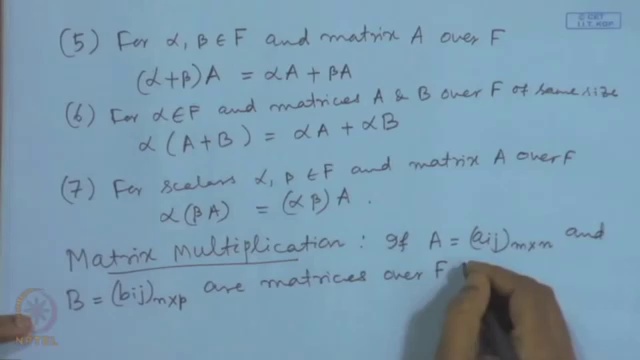 © CET
I.I.T. KGP
(5) For α, β ∈ F and matrix A over F
(α+β)A = αA + βA
(6) For α∈F and matrices A & B over F of same size
α(A+B) = αA + αB
(7) For scalars α, β ∈ F and matrix A over F
α(βA) = (αβ)A.
Matrix Multiplication : If A = (aij)m×n and
B = (bij)n×p are matrices over F
NPTEL